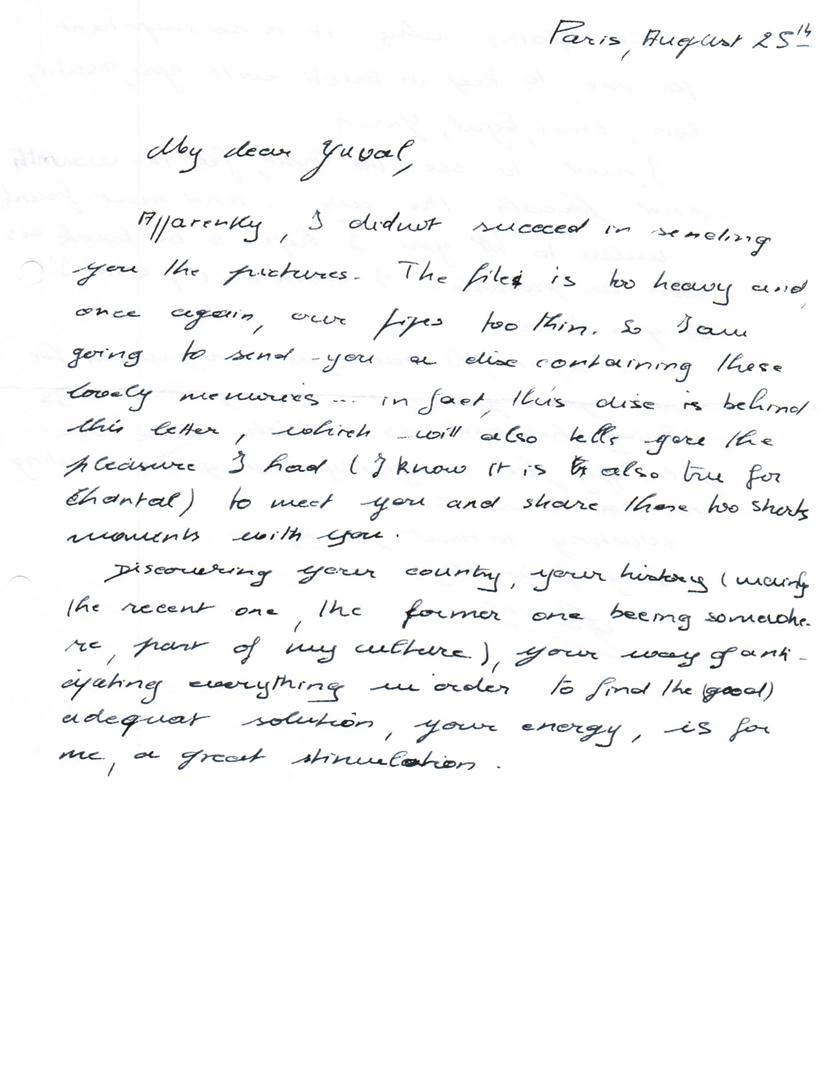 Paris, August 25th
My dear Yuval,
Apparently, I didnot succeed in sending
you the pictures. The file is too heavy and,
once again, our pipes too thin. So I am
going to send you a disc containing these
lovely memories... in fact, this disc is behind
this letter, which will also tells you the
pleasure I had (I know it is also true for
Chantal) to meet you and share these too shorts
moments with you.
Discovering your country, your history (mainly
the recent one, the former one beeing somewhe-
re, part of my culture), your way of anti-
cipating everything in order to find the (good)
adequat solution, your energy, is for
me, a great stimulation.